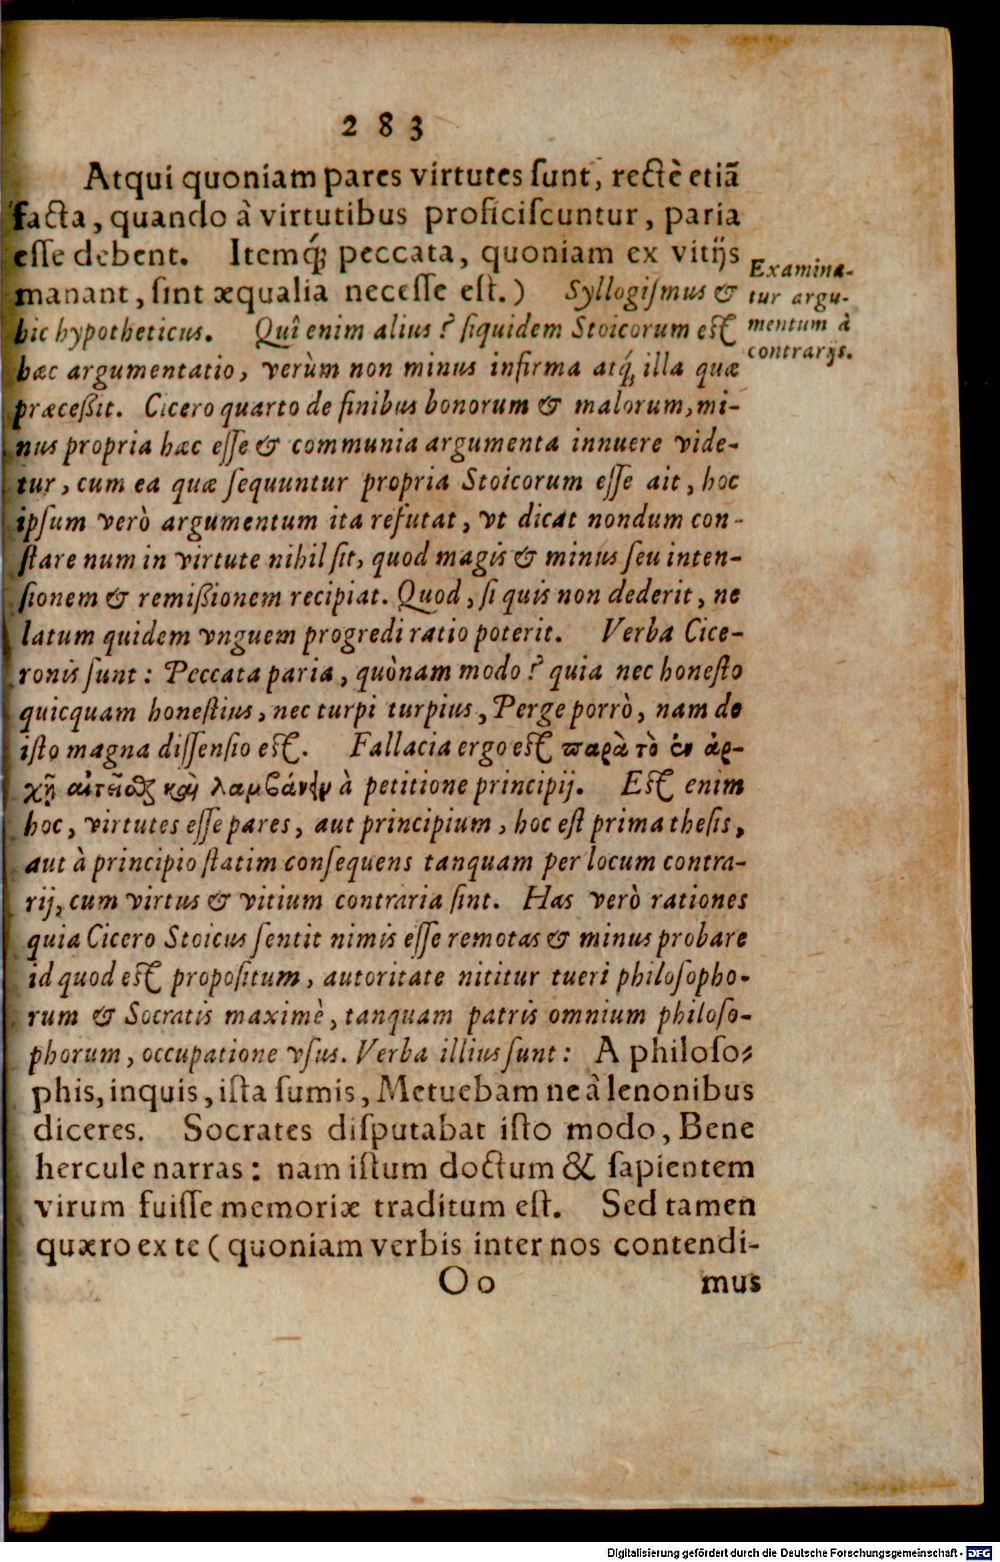 283
Atqui quoniam pares virtutes ſunt, rectè etiã
facta, quando à virtutibus proficiſcuntur, paria
eſſe debent. Itemq́; peccata, quoniam ex vitijs
manant, ſint æqualia neceſſe eſt.) Syllogiſmus &
hic hypotheticus. Quî enim alius? ſiquidem Stoicorum eſt
hæc argumentatio, verùm non minus infirma atq́; illa quæ
præceßit. Cicero quarto de finibus bonorum & malorum, mi-
nus propria hæc eſſe & communia argumenta innuere vide-
tur, cum ea quæ ſequuntur propria Stoicorum eſſe ait, hoc
ipſum verò argumentum ita refutat, vt dicat nondum con-
ſtare num in virtute nihil ſit, quod magis & minus ſeu inten-
ſionem & remißionem recipiat. Quod, ſi quis non dederit, ne
latum quidem vnguem progredi ratio poterit. Verba Cice-
ronis ſunt: Peccata paria, quònam modo? quia nec honeſto
quicquam honeſtius, nec turpi turpius, Perge porrò, nam de
iſto magna diſſenſio eſt. Fallacia ergo eſt παρὰ τὸ ἐν ἀρ-
χῇ αἰτεῖσθαι καὶ λαμβάνειν à petitione principij. Eſt enim
hoc, virtutes eſſe pares, aut principium, hoc eſt prima theſis,
aut à principio ſtatim conſequens tanquam per locum contra-
rij, cum virtus & vitium contraria ſint. Has verò rationes
quia Cicero Stoicus ſentit nimis eſſe remotas & minus probare
id quod eſt propoſitum, autoritate nititur tueri philoſopho-
rum & Socratis maximè, tanquam patris omnium philoſo-
phorum, occupatione vſus. Verba illius ſunt: A philoſo-
phis, inquis, iſta ſumis, Metuebam ne à lenonibus
diceres. Socrates diſputabat iſto modo, Bene
hercule narras: nam iſtum doctum & ſapientem
virum fuiſſe memoriæ traditum eſt. Sed tamen
quæro ex te (quoniam verbis inter nos contendi-
Oo mus
Examina-
tur argu-
mentum à
contrarijs.
Digitalisierung gefördert durch die Deutsche Forschungsgemeinschaft - DFG